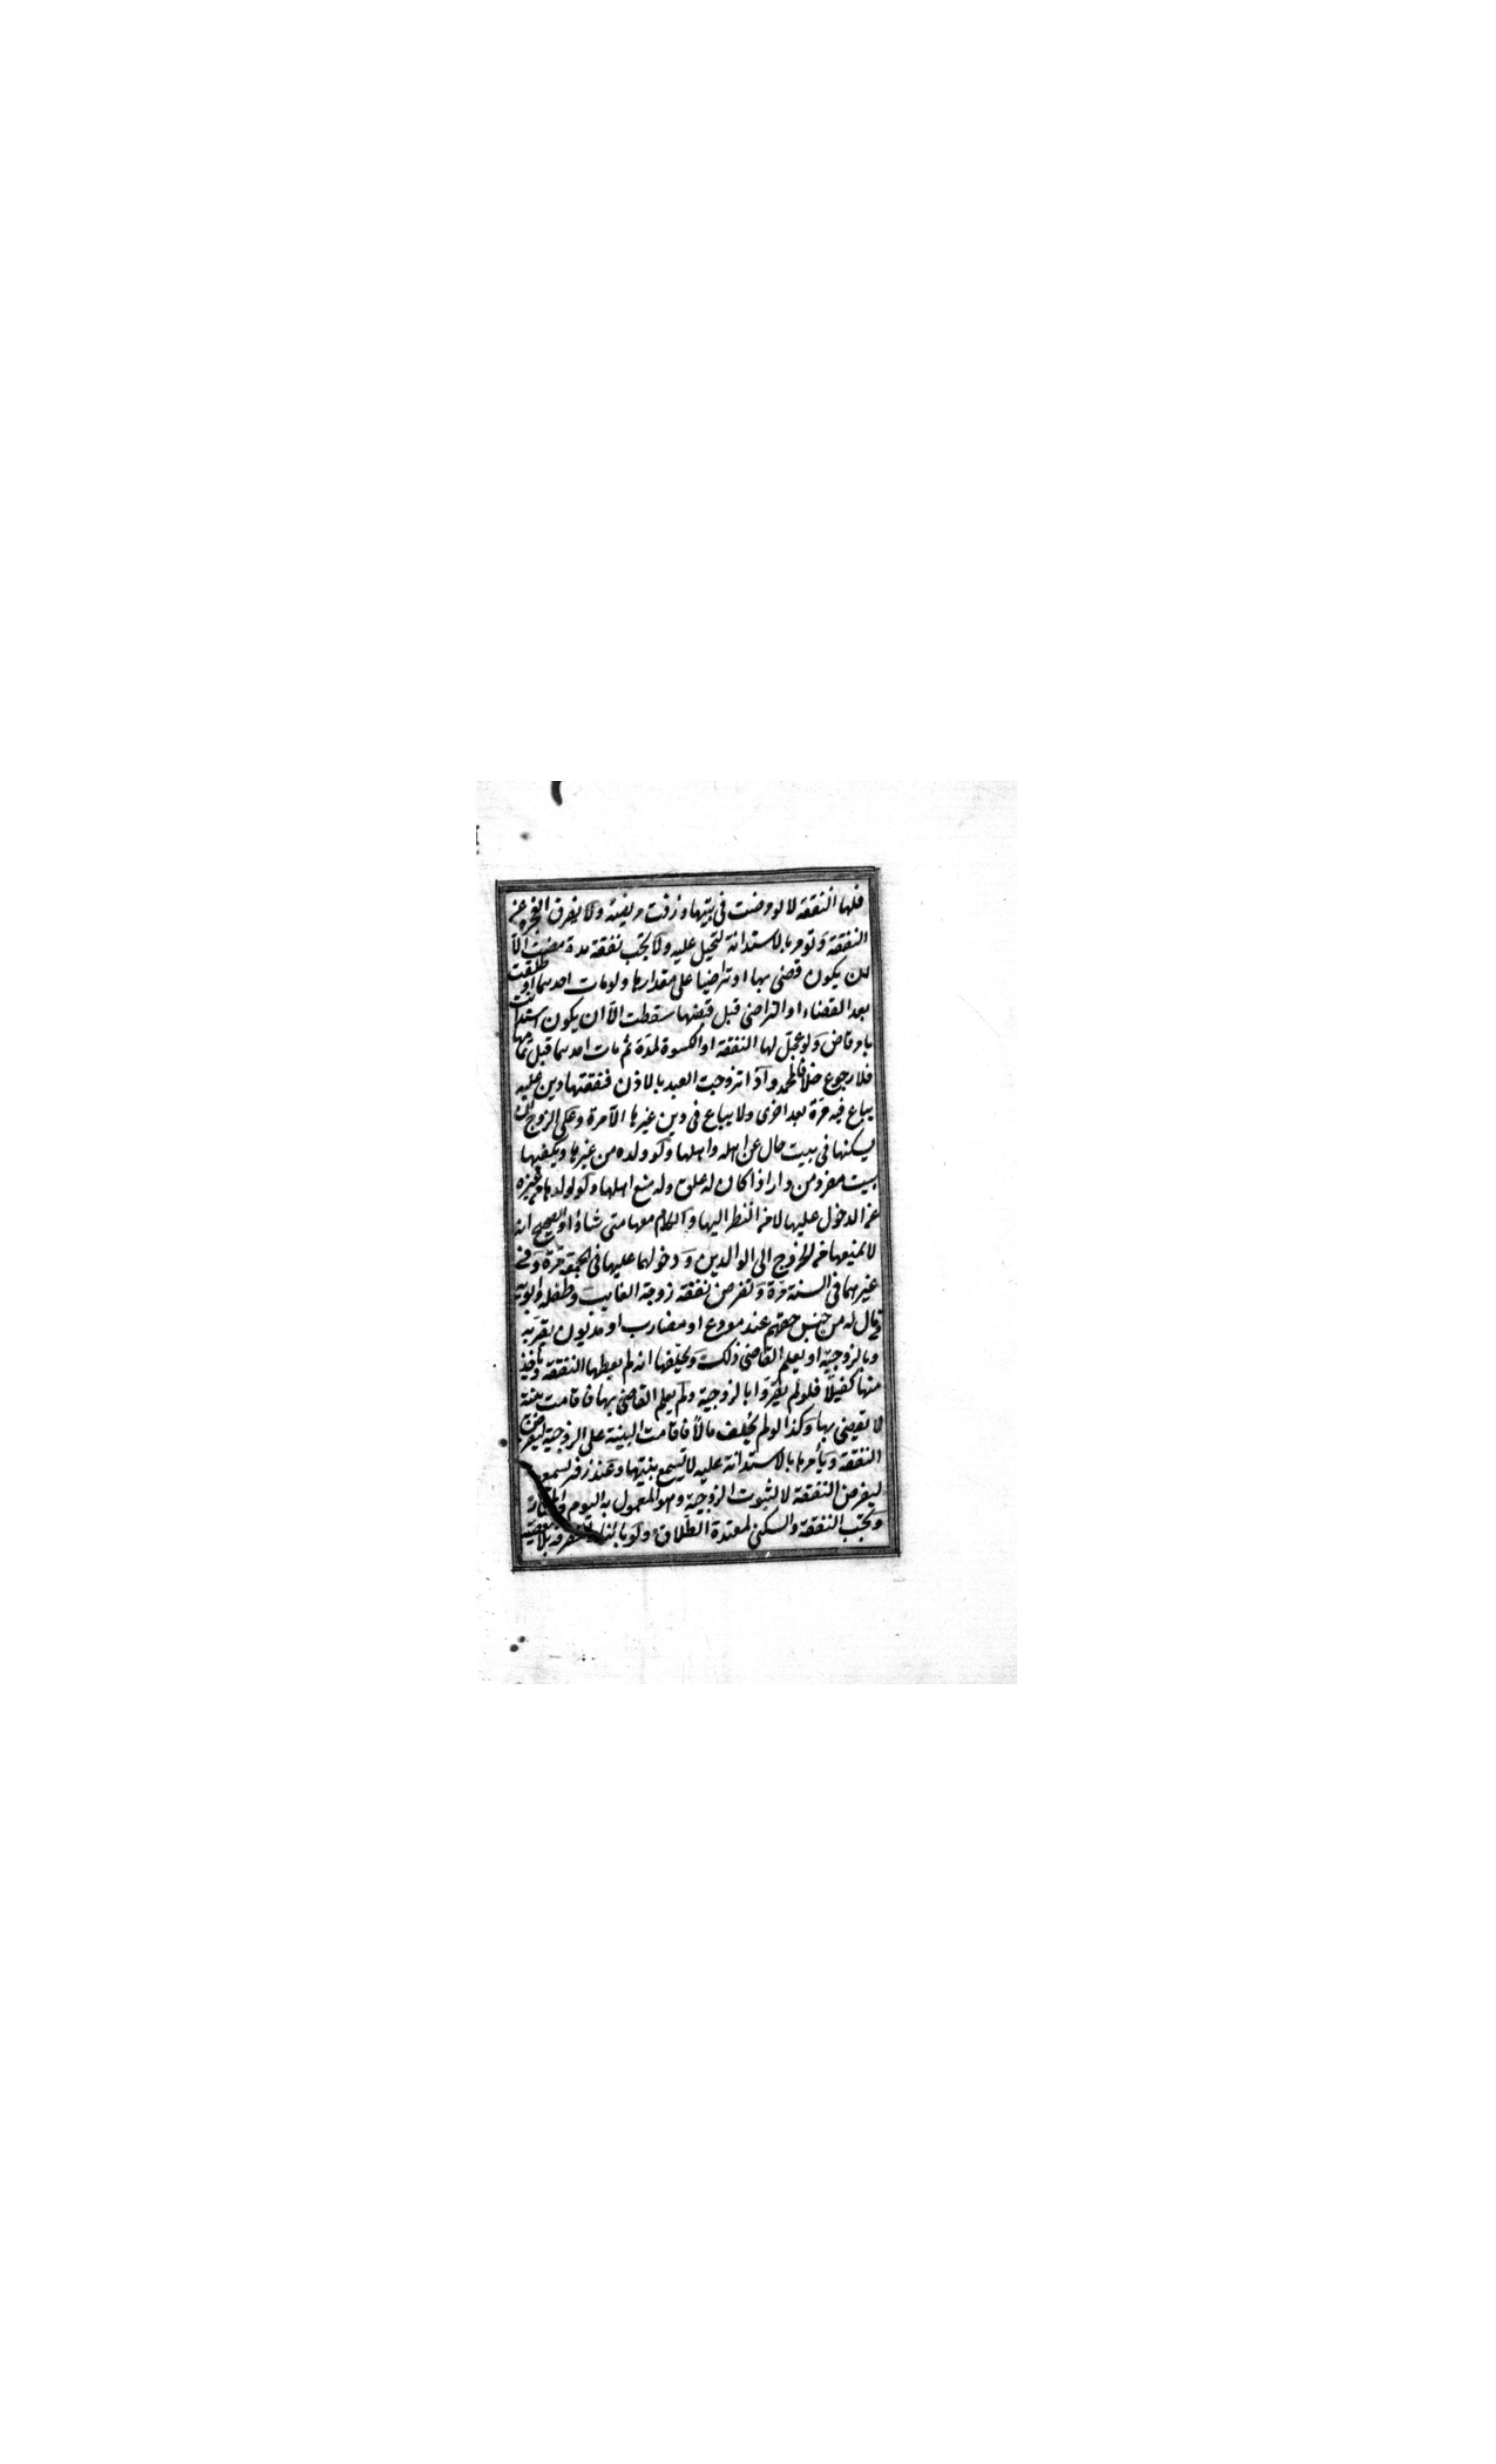 فلها النفقة لا لو مرضت في بيتها وزفت مريضة ولا يفرق لعجزه عن
النفقة وتؤمر بالاستدانة لتحيل عليه ولا تجب نفقة مدة مضت الا
ان يكون قضى بها او تراضيا على مقدارها ولو مات احدهما او طلقت
بعد القضاء او التراضي قبل قبضها سقطت الا ان يكون استدانت
بامر قاض ولو عجل لها النفقة او الكسوة لمدة ثم مات احدهما قبل تمامها
فلا رجوع خلافا لمحمد واذا تزوجت العبد بالاذن فنفقتها دين عليه
يباع فيه مرة بعد اخرى ولا يباع في دين غيرها الا مرة وعلى الزوج ان
يسكنها في بيت خال عن اهله واهلها ولو ولده من غيرها ويكفيها
بيت مفرد من دار اذا كان له غلق وله منع اهلها ولو ولدها من غيره
عن الدخول عليها لا من النظر اليها والكلام معها متى شاؤا والصحيح انه
لا يمنعها من الخروج الى الوالدين ودخولهما عليها في الجمعة مرة وفي
غيرهما في السنة مرة وتفرض نفقة زوجة الغايب وطفله وابويه
في مال له من جنس حقهم عند مودع او مضارب او مديون يقر به
وبالزوجية او يعلم القاضي ذلك ويحلفها انه لم يعطها النفقة وياخذ
منها كفيلا فلو لم يقروا بالزوجية ولم يعلم القاضي بها فاقامت بينة
لا يقضي بها وكذا لو لم يخلف مالا فاقامت البينة على الزوجية ليفرض
النفقة ويأمرها بالاستدانة عليه لا تسمع بينتها وعند زفر تسمع
ليفرض النفقة لا لثبوت الزوجية وهو المعمول به اليوم والمختار
وتجب النفقة والسكنى لمعتدة الطلاق ولو باينا والمفرقة بلا معصية